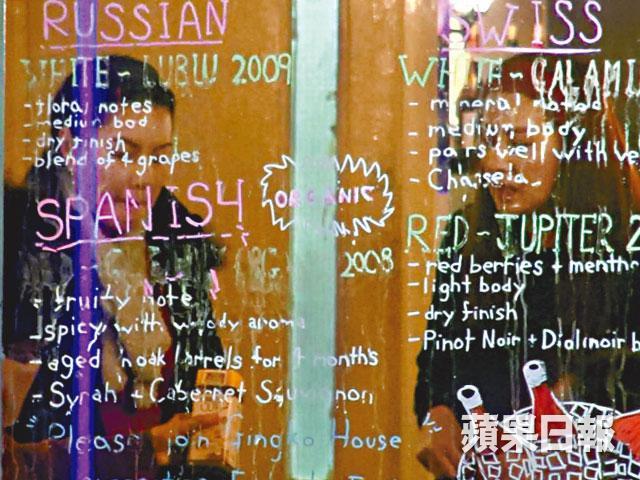 RUSSIAN
WHITE ~ LUBLU 2009
- floral notes
- medium bod
- dry finish
- blend of 4 grapes
SPANIS4
ORGANIC
2008
- fruity note
- spicy with woody aroma
- aged in oak barrels for months
- Syrah + Cabernet Sauvignon
Please join Jingko House
SWISS
WHITE ~ CALAMI
- mineral
- medium body
- pars well with ve
- Chasela
RED - JUPITER 2
- red berries + menth
- light body
- dry finish
- Pinot Noir + Dialinoir b
蘋果日報